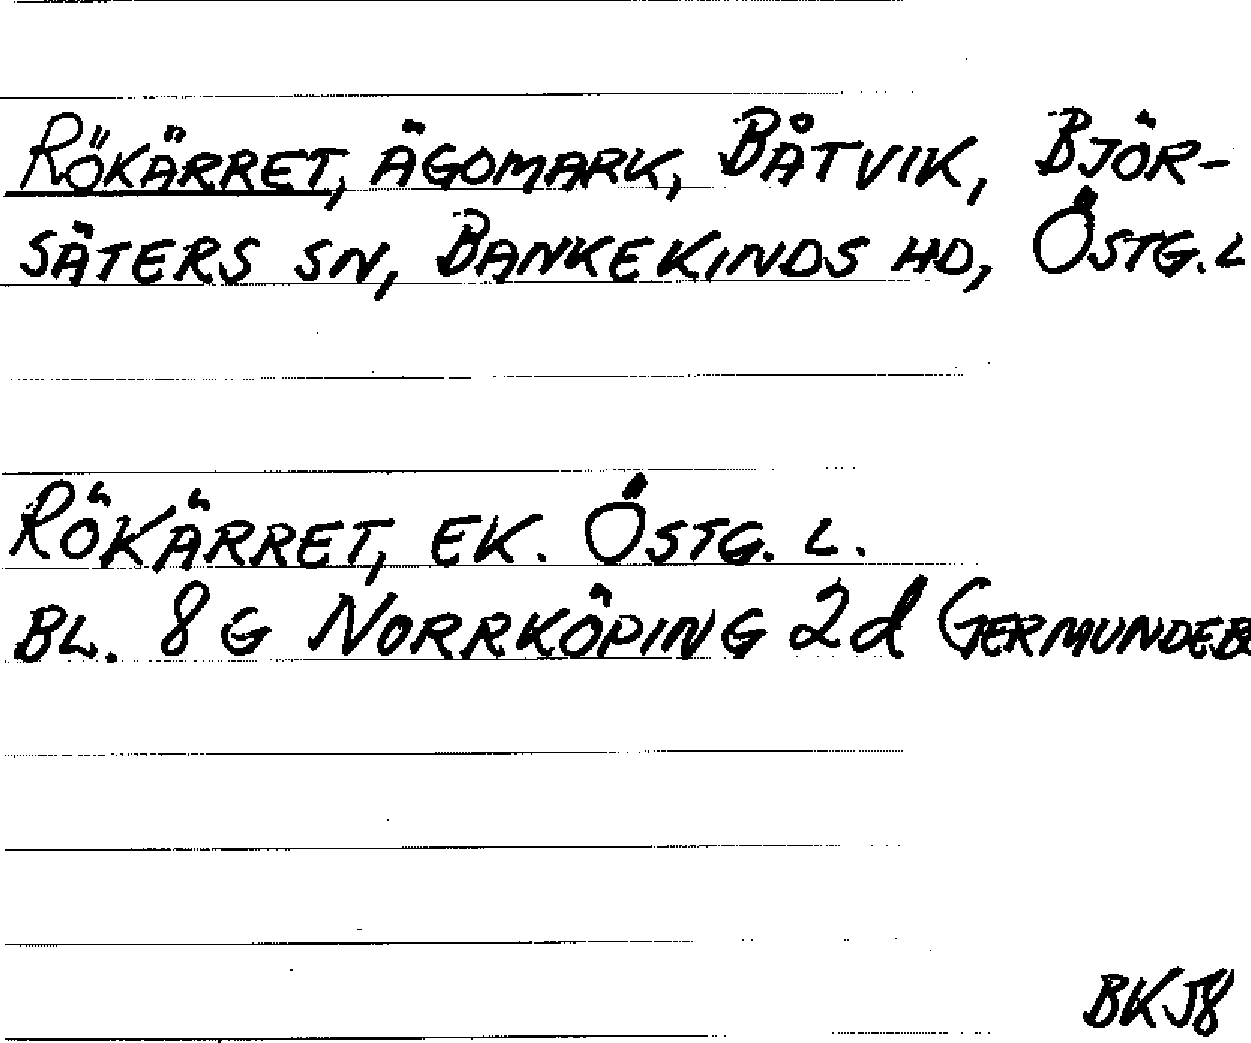 RÖKÄRRET, ÄGOMARK, BÅTVIK, BJÖR-
SÄTERS SN, BANKEKINDS HD, ÖSTG. L
RÖKÄRRET, EK. ÖSTG. L.
BL. 8 G NORRKÖPING 2d GERMUNDEB
BKJ8